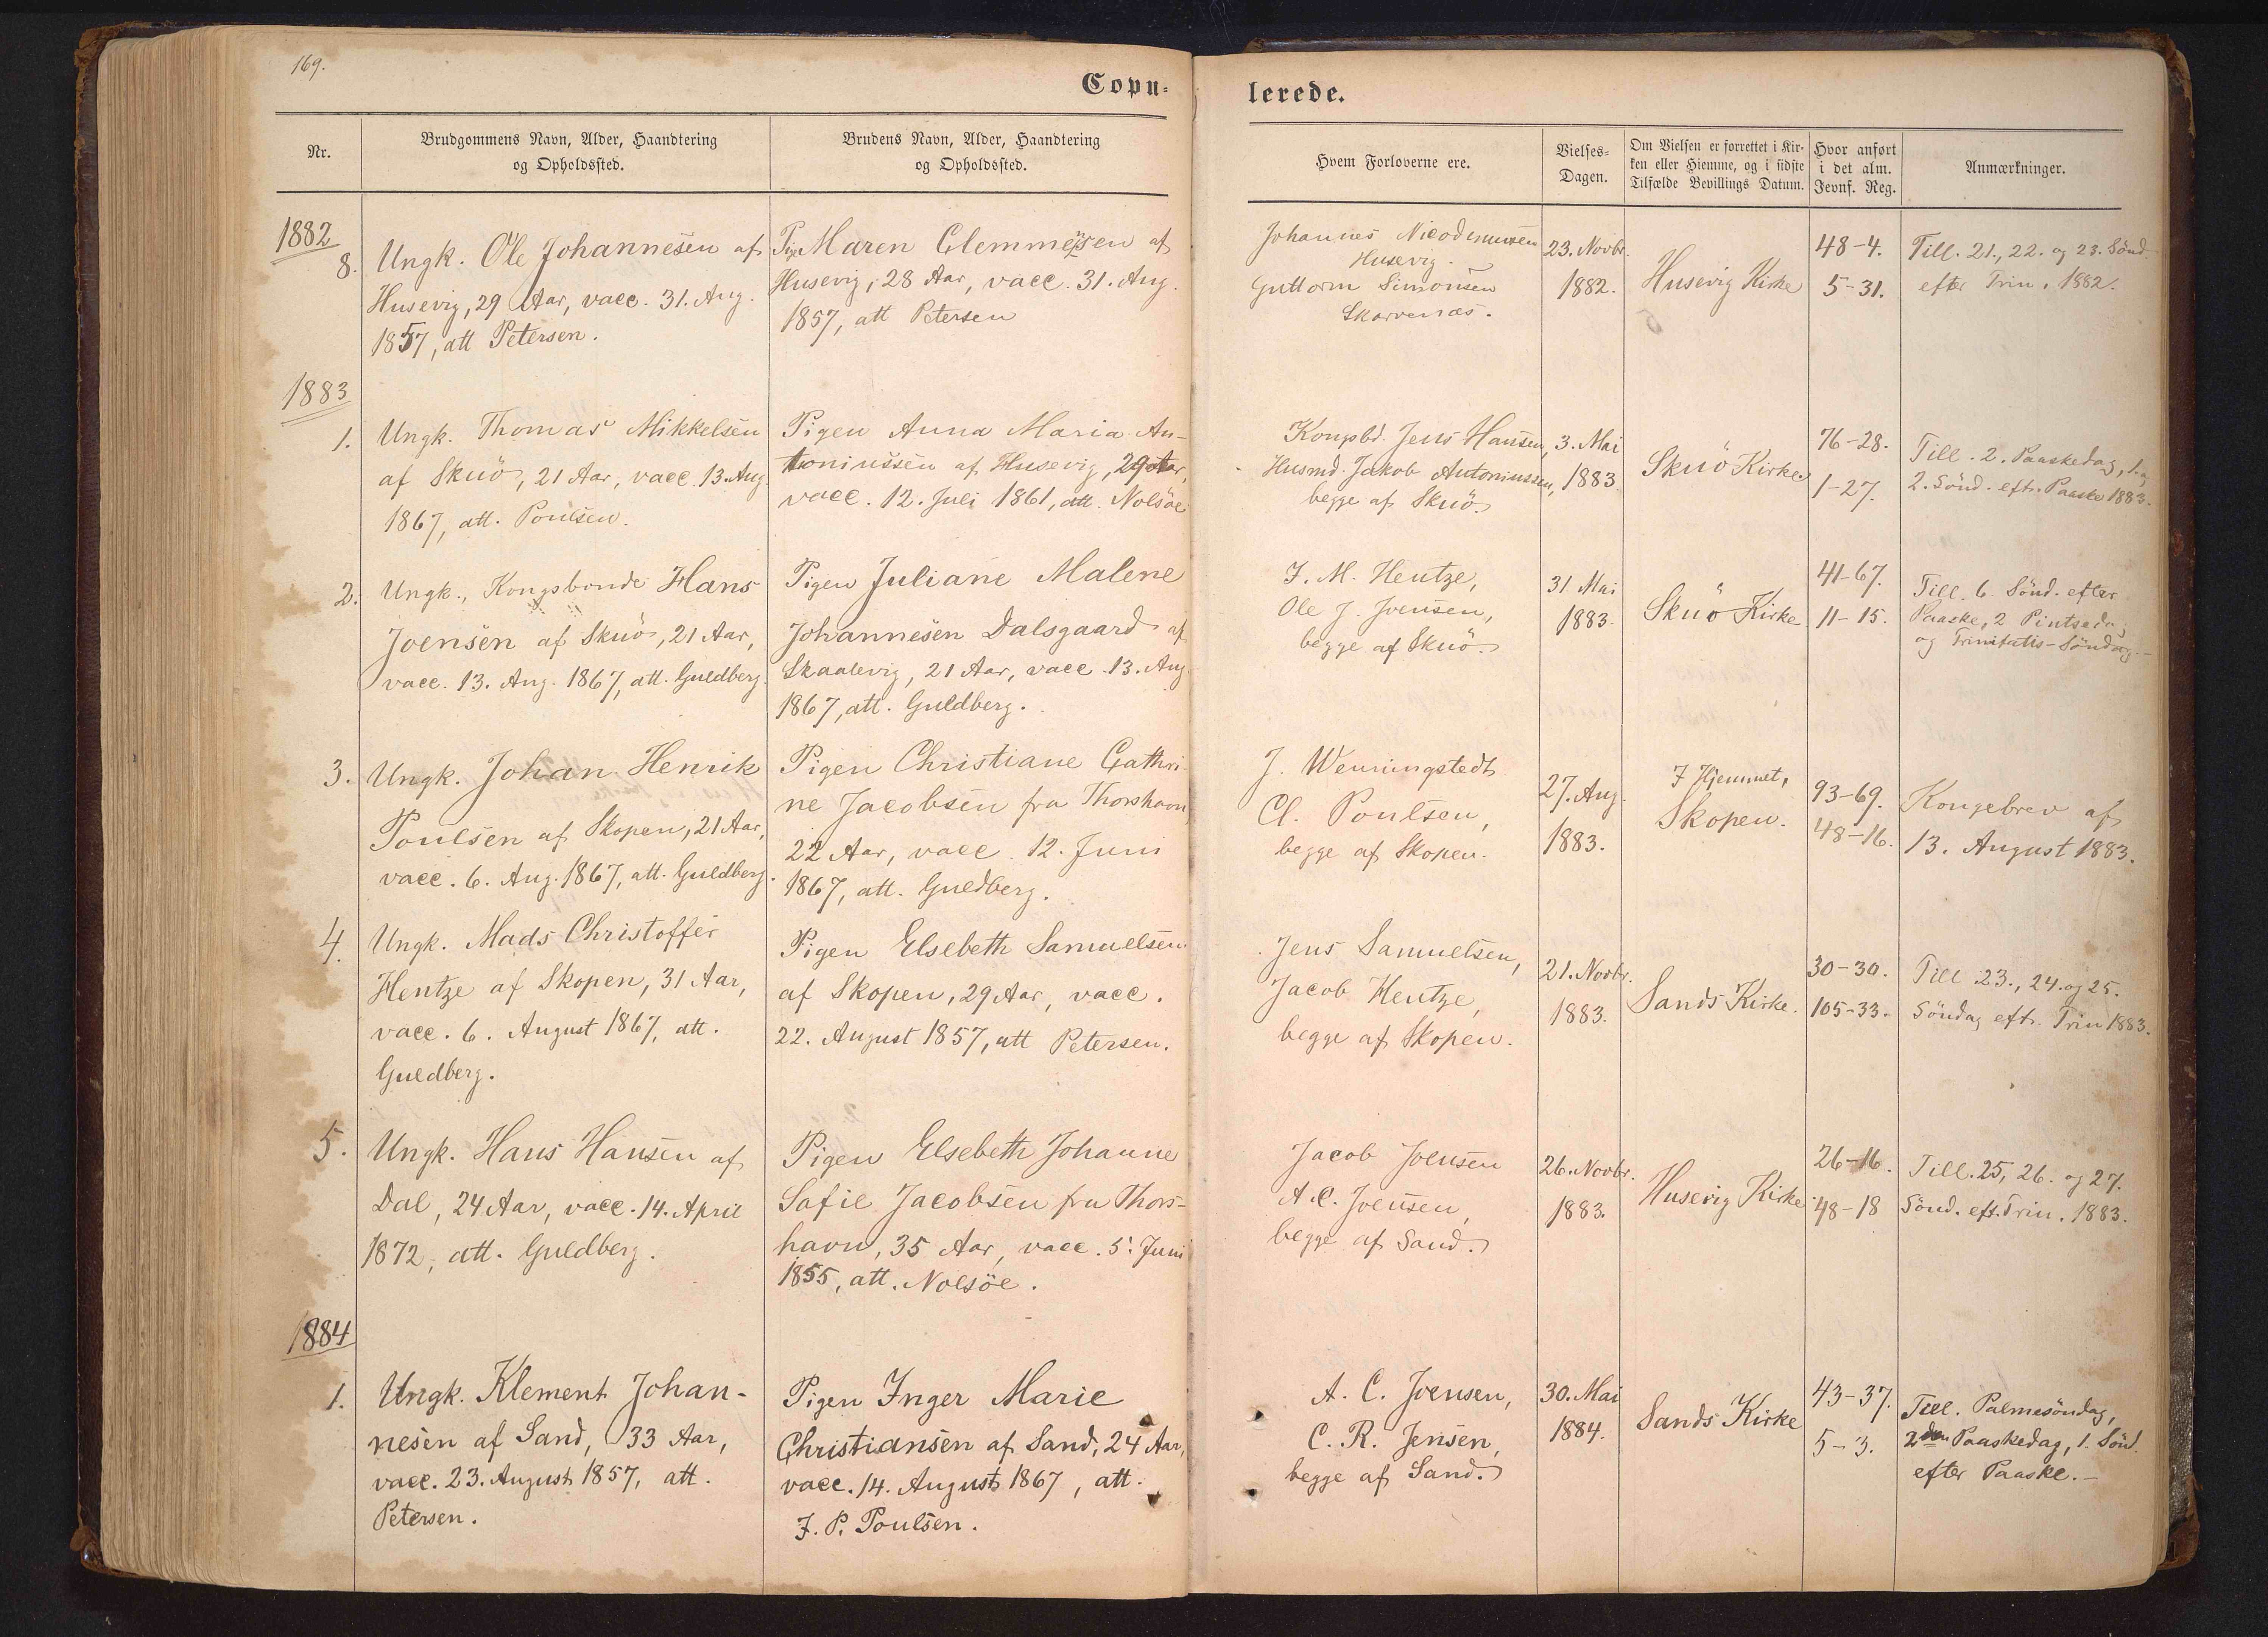 169.
Copu-
lerede.
Nr.
Brudgommens Navn, Alder, Haandtering
og Opholdssted.
Brudens Navn, Alder, Haandtering
og Opholdssted.
Hvem Forloverne ere.
Vielses-
Dagen.
Om Vielsen er forrettet i Kir-
ken eller Hiemme, og i sidste
Tilfælde Bevillings Datum.
Hvor anført
i det alm.
Jevnf. Reg.
Anmærkninger.
1882
8.
Ungk. Ole Johannesen af
Husevig, 29 Aar, vacc. 31. Aug.
1857, att Petersen.
Pig. Maren Clemmensen af
Husevig, 28 Aar, vacc. 31. Aug.
1857, att Petersen
Johannes Nicodemussen
Husevig.
Guttorm Simonsen
Skarvenæs.
23. Novbr.
1882.
Husevig Kirke
48-4.
5-31.
Till. 21., 22. og 23. Sönd
efter Trin. 1882.
1883
1.
Ungk. Thomas Mikkelsen
af Skuö, 21 Aar, vacc. 13. Aug.
1867, att. Poulsen.
Pigen Anna Maria An-
toniussen af Husevig, 29 Aar,
vacc. 12. Juli 1861, att. Nolsöe
Kongsbd. Jens Hansen,
Husmd. Jakob Antoniussen,
begge af Skuö.
3. Mai
1883
Skuö Kirke
76-28.
1-27.
Till. 2. Paaskedag, 1. og
2. Sönd. eft. Paaske 1883.
2.
Ungk., Kongsbonde Hans
Joensen af Skuö, 21 Aar,
vacc. 13. Aug. 1867, att. Guldberg.
Pigen Juliane Malene
Johannesen Dalsgaard af
Skaalevig, 21 Aar, vacc. 13. Aug
1867, att. Guldberg.
J. M. Hentze,
Ole J. Joensen,
begge af Skuö.
31. Mai
1883.
Skuö Kirke
41-67.
11-15.
Till. 6. Sönd. efter
Paaske, 2 Pintsedag
og Trinitatis-Söndag.-
3.
Ungk. Johan Henrik
Poulsen af Skopen, 21 Aar,
vacc. 6. Aug. 1867, att. Guldberg.
Pigen Christiane Cathri-
ne Jacobsen fra Thorshavn
22 Aar, vacc. 12. Juni
1867, att. Guldberg.
J. Wenningstedt
Cl. Poulsen,
begge af Skopen.
27. Aug.
1883.
I Hjemmet,
Skopen.
93-69.
48-16.
Kongebrev af
13. August 1883.
4.
Ungk. Mads Christoffer
Hentze af Skopen, 31 Aar,
vacc. 6. August 1867, att.
Guldberg.
Pigen Elsebeth Samuelsen
af Skopen, 29 Aar, vacc.
22. August 1857, att Petersen.
Jens Samuelsen,
Jacob Hentze,
begge af Skopen.
21. Novbr.
1883.
Sands Kirke.
30-30.
105-33.
Till 23., 24. og 25.
Söndag eft. Trin 1883.
5.
Ungk. Hans Hansen af
Dal, 24 Aar, vacc. 14. April
1872, att. Guldberg.
Pigen Elsebeth Johanne
Safie Jacobsen fra Thors-
havn, 35 Aar, vacc. 5. Juni
1855, att. Nolsöe.
Jacob Joensen
A. C. Joensen,
begge af Sand.
26. Novbr.
1883.
Husevig Kirke.
26-16.
48-18
Till. 25, 26. og 27.
Sönd. eft. Trin. 1883.
1884
1.
Ungk. Klement Johan-
nesen af Sand, 33 Aar,
vacc. 23. August 1857, att.
Petersen.
Pigen Inger Marie
Christiansen af Sand, 24 Aar,
vacc. 14. August 1867, att.
J. P. Poulsen.
A. C. Joensen,
C. R. Jensen,
begge af Sand.
30. Mai
1884.
Sands Kirke
43-37.
5-3.
Till. Palmesöndag,
2den Paaskedag, 1. Sönd.
efter Paaske.-